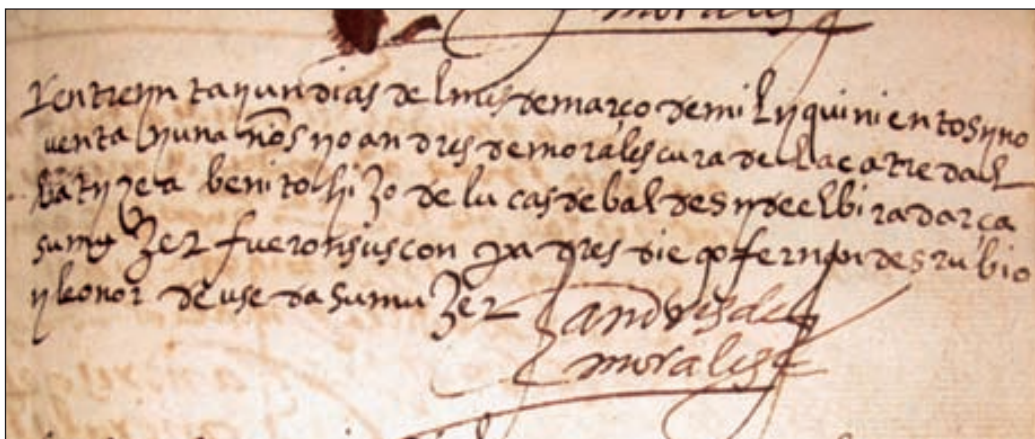 morales
En treynta y un dias del mes de março de mil y quinientos y no
venta y un años yo andres de morales cura de la catredal
batyze a benito hizo de lucas de baldes y de elbira darça
su muzer fueron sus conpadres diego fernandes rubio
y leonor de useda su muzer
andres de
morales